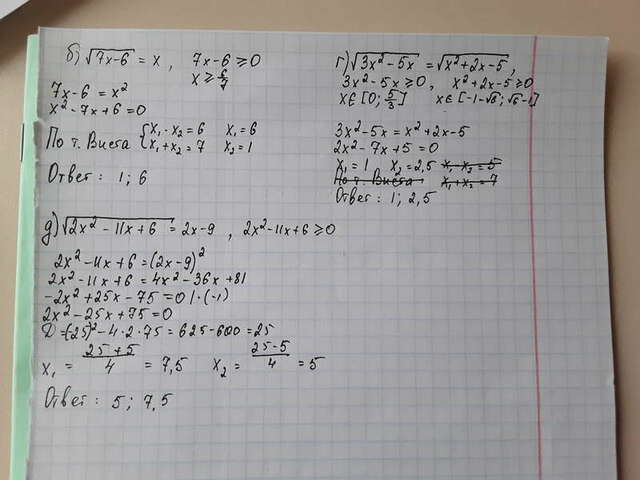 б) √7x-6 = x, 7x-6 ≥ 0
x ≥ 6/7
7x-6 = x²
x²-7x+6=0
По т. Виета { x₁·x₂=6 x₁=6
x₁+x₂=7 x₂=1
Ответ: 1; 6
г) √3x²-5x = √x²+2x-5,
3x²-5x ≥ 0, x²+2x-5 ≥ 0
x∈[0; 5/3] x∈[-1-√6; √6-1]
3x²-5x = x²+2x-5
2x²-7x+5=0
x₁=1 x₂=2,5 x₁·x₂=5
По т. Виета x₁+x₂=7
Ответ: 1; 2,5
д) √2x²-11x+6 = 2x-9, 2x²-11x+6 ≥ 0
2x²-11x+6=(2x-9)²
2x²-11x+6=4x²-36x+81
-2x²+25x-75=0 |·(-1)
2x²-25x+75=0
D=(25)²-4·2·75=625-600=25
x₁ = 25+5/4 = 7,5 x₂ = 25-5/4 = 5
Ответ: 5; 7,5